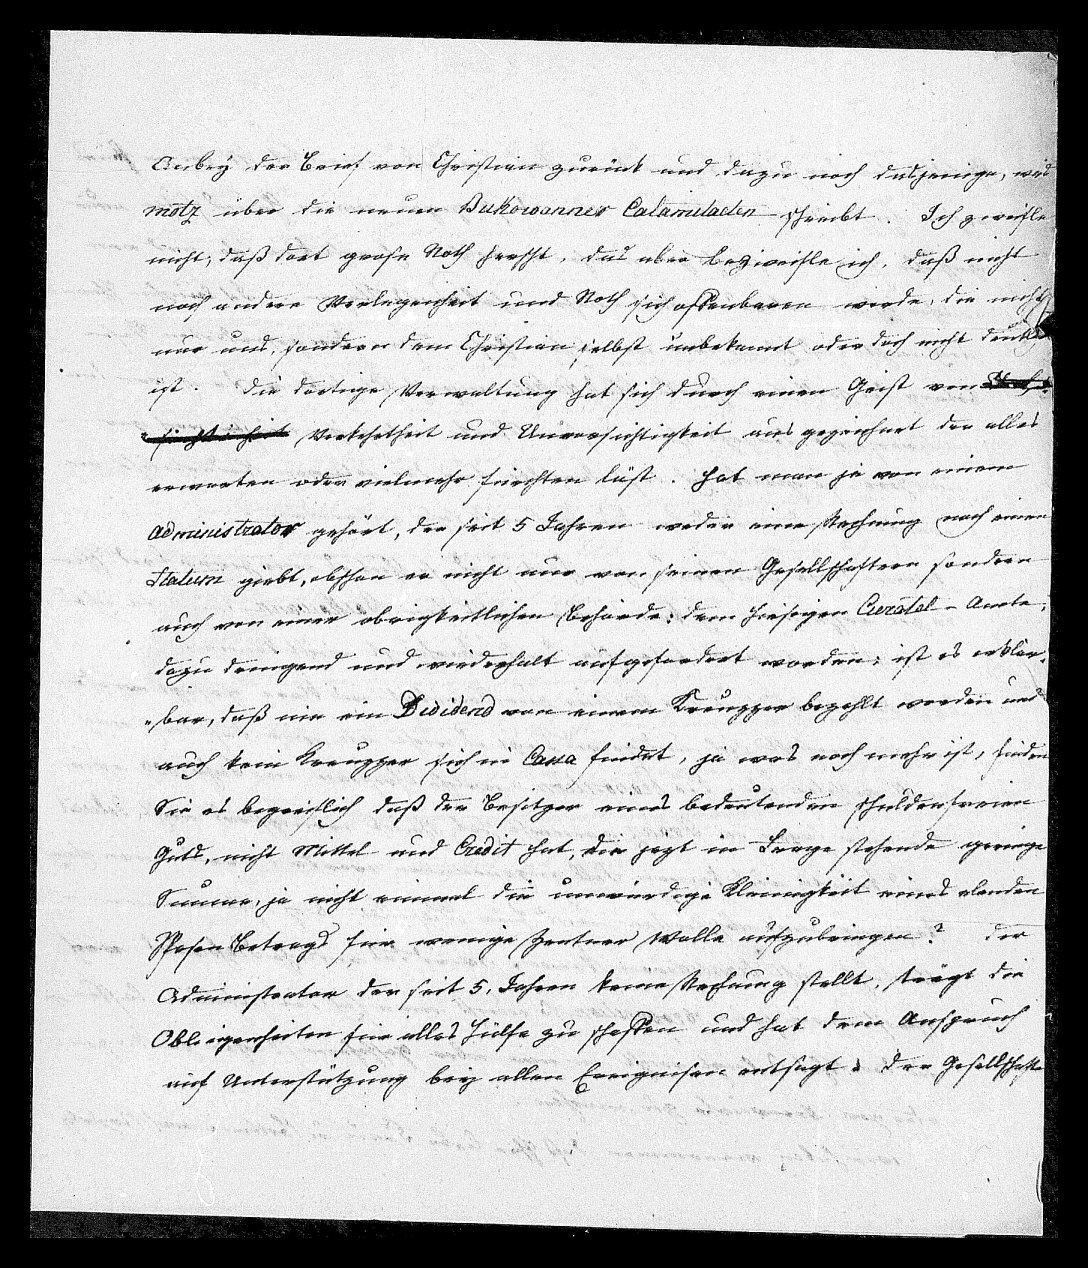 Anbey der Brief von Christian zurück und dazu noch dasjenige, was
Motz über die neuen Bukowanner Calamitaeten schreibt. Ich zweifle
nicht, daß dort große Noth herscht, das aber bezweifle ich, daß nicht
noch andere Verlegenheit und Noth sich offenbaren werde, die nicht
nur uns, sondern dem Christian selbst unbekannt oder doch nicht deutlich
ist. Die dortige Verwaltung hat sich durch einen Geist von
Verkehrtheit und Unvorsichtigkeit ausgezeichnet der alles
erwarten oder vielmehr fürchten läst. Hat man je von einem
Administrator gehört, der seit 5 Jahren weder eine Rechnung noch einen
Statum giebt, obschon er nicht nur von seinen Gesellschaftern sondern
auch von einer obrigkeitlichen Behörde: dem hiesigen Curatel-Amte,
dazu dringend und wiederholt aufgefordert worden; ist es erklär-
bar, daß nie ein Dividend von einem Kreuzzer bezahlt worden und
auch kein Kreuzzer sich in Cassa findet, ja was noch mehr ist, finden
Sie es begreiflich daß der Besitzer eines bedeutenden schuldenfreien
Guts, nicht Mittel und Credit hat, die jezt in Frage stehende geringe
Summe, ja nicht einmal die unwürdige Kleinigkeit eines elenden
Spesen Betrags für wenige Zentner Wolle aufzubringen? Der
Administrator der seit 5 Jahren keine Rechnung stellt, trägt die
Obliegenheiten für alles Hülfe zu schaffen und hat dem Anspruch
auf Unterstützung bey allen Ereignissen entsagt. Der Gesellschafts